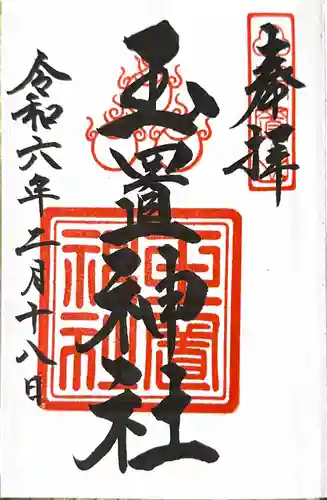 奉拝
玉置神社
令和六年二月十八日
玉置
神社